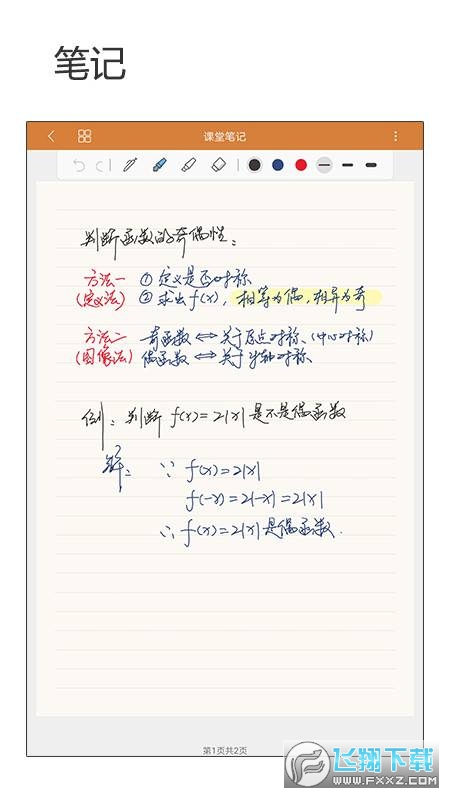 笔记
课堂笔记
判断函数的奇偶性:
方法一 ① 定义是否对称
(定义法) ② 求出f(x), 相等为偶,相异为奇
方法二 奇函数 ⟺ 关于原点对称、(中心对称)
(图像法) 偶函数 ⟺ 关于y轴对称、
例:判断 f(x)=2|x| 是不是偶函数
解: ∵ f(x)=2|x|
f(-x)=2|-x|=2|x|
∴ f(x)=2|x| 是偶函数.
第1页共2页
飞翔下载
WWW.FXXZ.COM